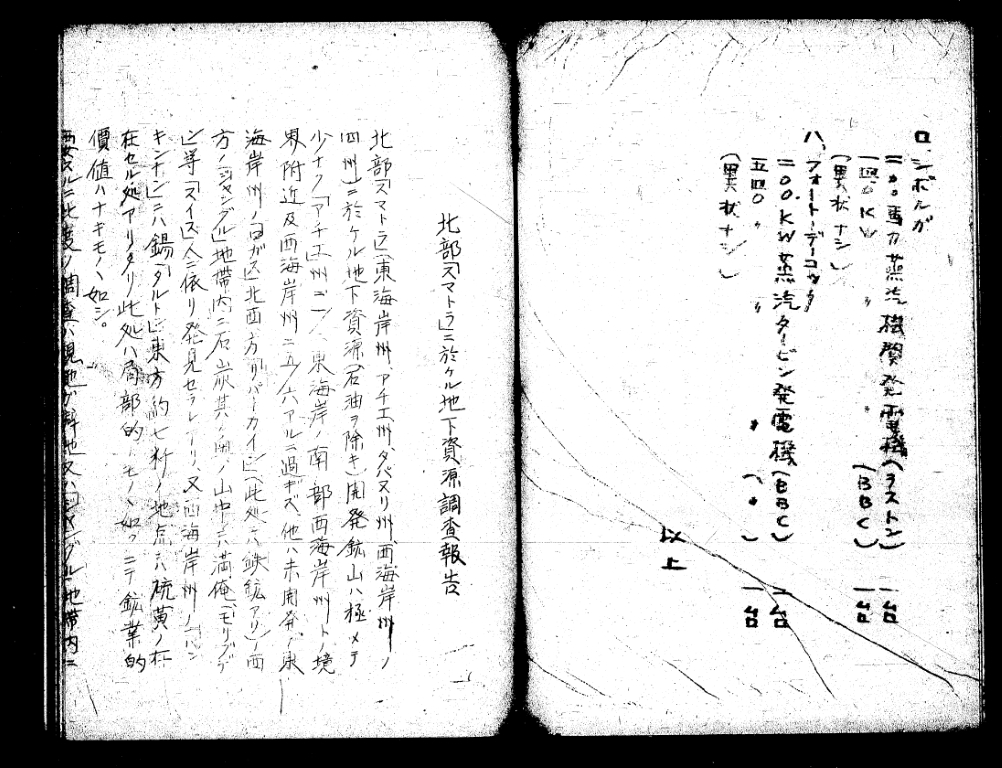 ロ、シボルガ
二〇〇馬力蒸汽機関発電機(ラストン) 一台
一四〇KW 〃 〃 (BBC) 一台
(異状ナシ)
ハ、フォートデーコック
二〇〇KW蒸汽タービン発電機(BBC) 一台
五四〇 〃 〃 〃 (〃) 一台
(異状ナシ)
以上
北部「スマトラ」ニ於ケル地下資源調査報告
北部「スマトラ」(東海岸州、アチエ州、タパヌリ州、西海岸州ノ
四州)ニ於ケル地下資源(石油ヲ除キ)開発鉱山ハ極メテ
少ナク「アチエ」州ニ一、東海岸ノ南部西海岸州トノ境
界附近及西海岸州ニ五ノ六アルニ過ギズ、他ハ未開発ノ東
海岸州ノ 北西方「リバーカイン」(此処ニハ鉄鉱アリ)ノ西
方ノ「ジャングル」地帯内ニ石炭其ノ ノ山中ニハ満俺、「モリブデ
ン」等「スイス」人ニ依リ発見セラレアリ、又西海岸州ノ「バン
キンナン」ニハ錫「タルト」東方約七粁ノ地点ニハ硫黄ノ存
在セル処アリタリ此処ハ局部的ノモノノ如クニテ鉱業的
價値ハナキモノノ如シ。
要スルニ此度ノ調査ハ現地ガ 地又ハ「ジャングル」地帯内ニ